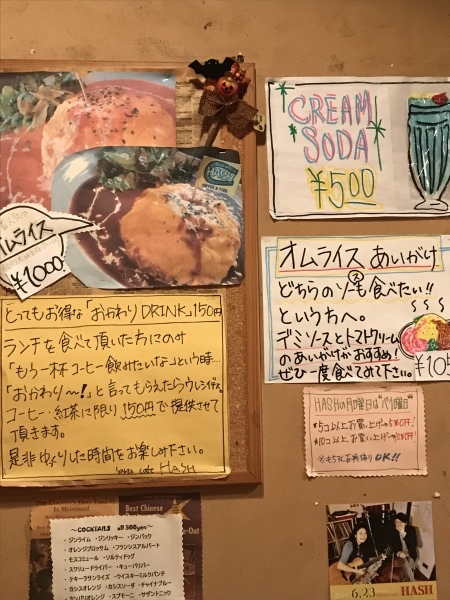 オムライス
¥1000
HASH
CREAM
SODA
¥500
とってもお得な「おかわりDRINK」150円
ランチを食べて頂いた方にのみ
「もう一杯コーヒー飲みたいな」という時…
「おかわり〜!」と言ってもらえたらウレシイです
コーヒー・紅茶に限り150円で提供させて
頂きます。
是非ゆっくりした時間をお楽しみ下さい。
HASH
オムライス あいがけ
どちらのソースも食べたい!!
というちへ。
デミソースとトマトクリーム
のあいがけがおすすめ!
ぜひ一度食べてみて下さい。
¥105
HASHの月曜日は"パイ曜日"
*5コ以上お買い上げで5%OFF!
*10コ以上お買い上げで10%OFF!
OK!!
Best Chinese
-Out
〜COCKTAILS all 500yen〜
・ジンライム ・ジンリッキー ・ジンバック
オレンジブロッサム ・フランシスアルバート
モスコミュール ・ソルティドッグ
スクリュードライバー ・キューバリバー
テキーラサンライズ ・ウイスキーミルクパンチ
カシスオレンジ ・カシスソーダ ・チャイナブルー
・スプモーニ ・サザントニック
6.23